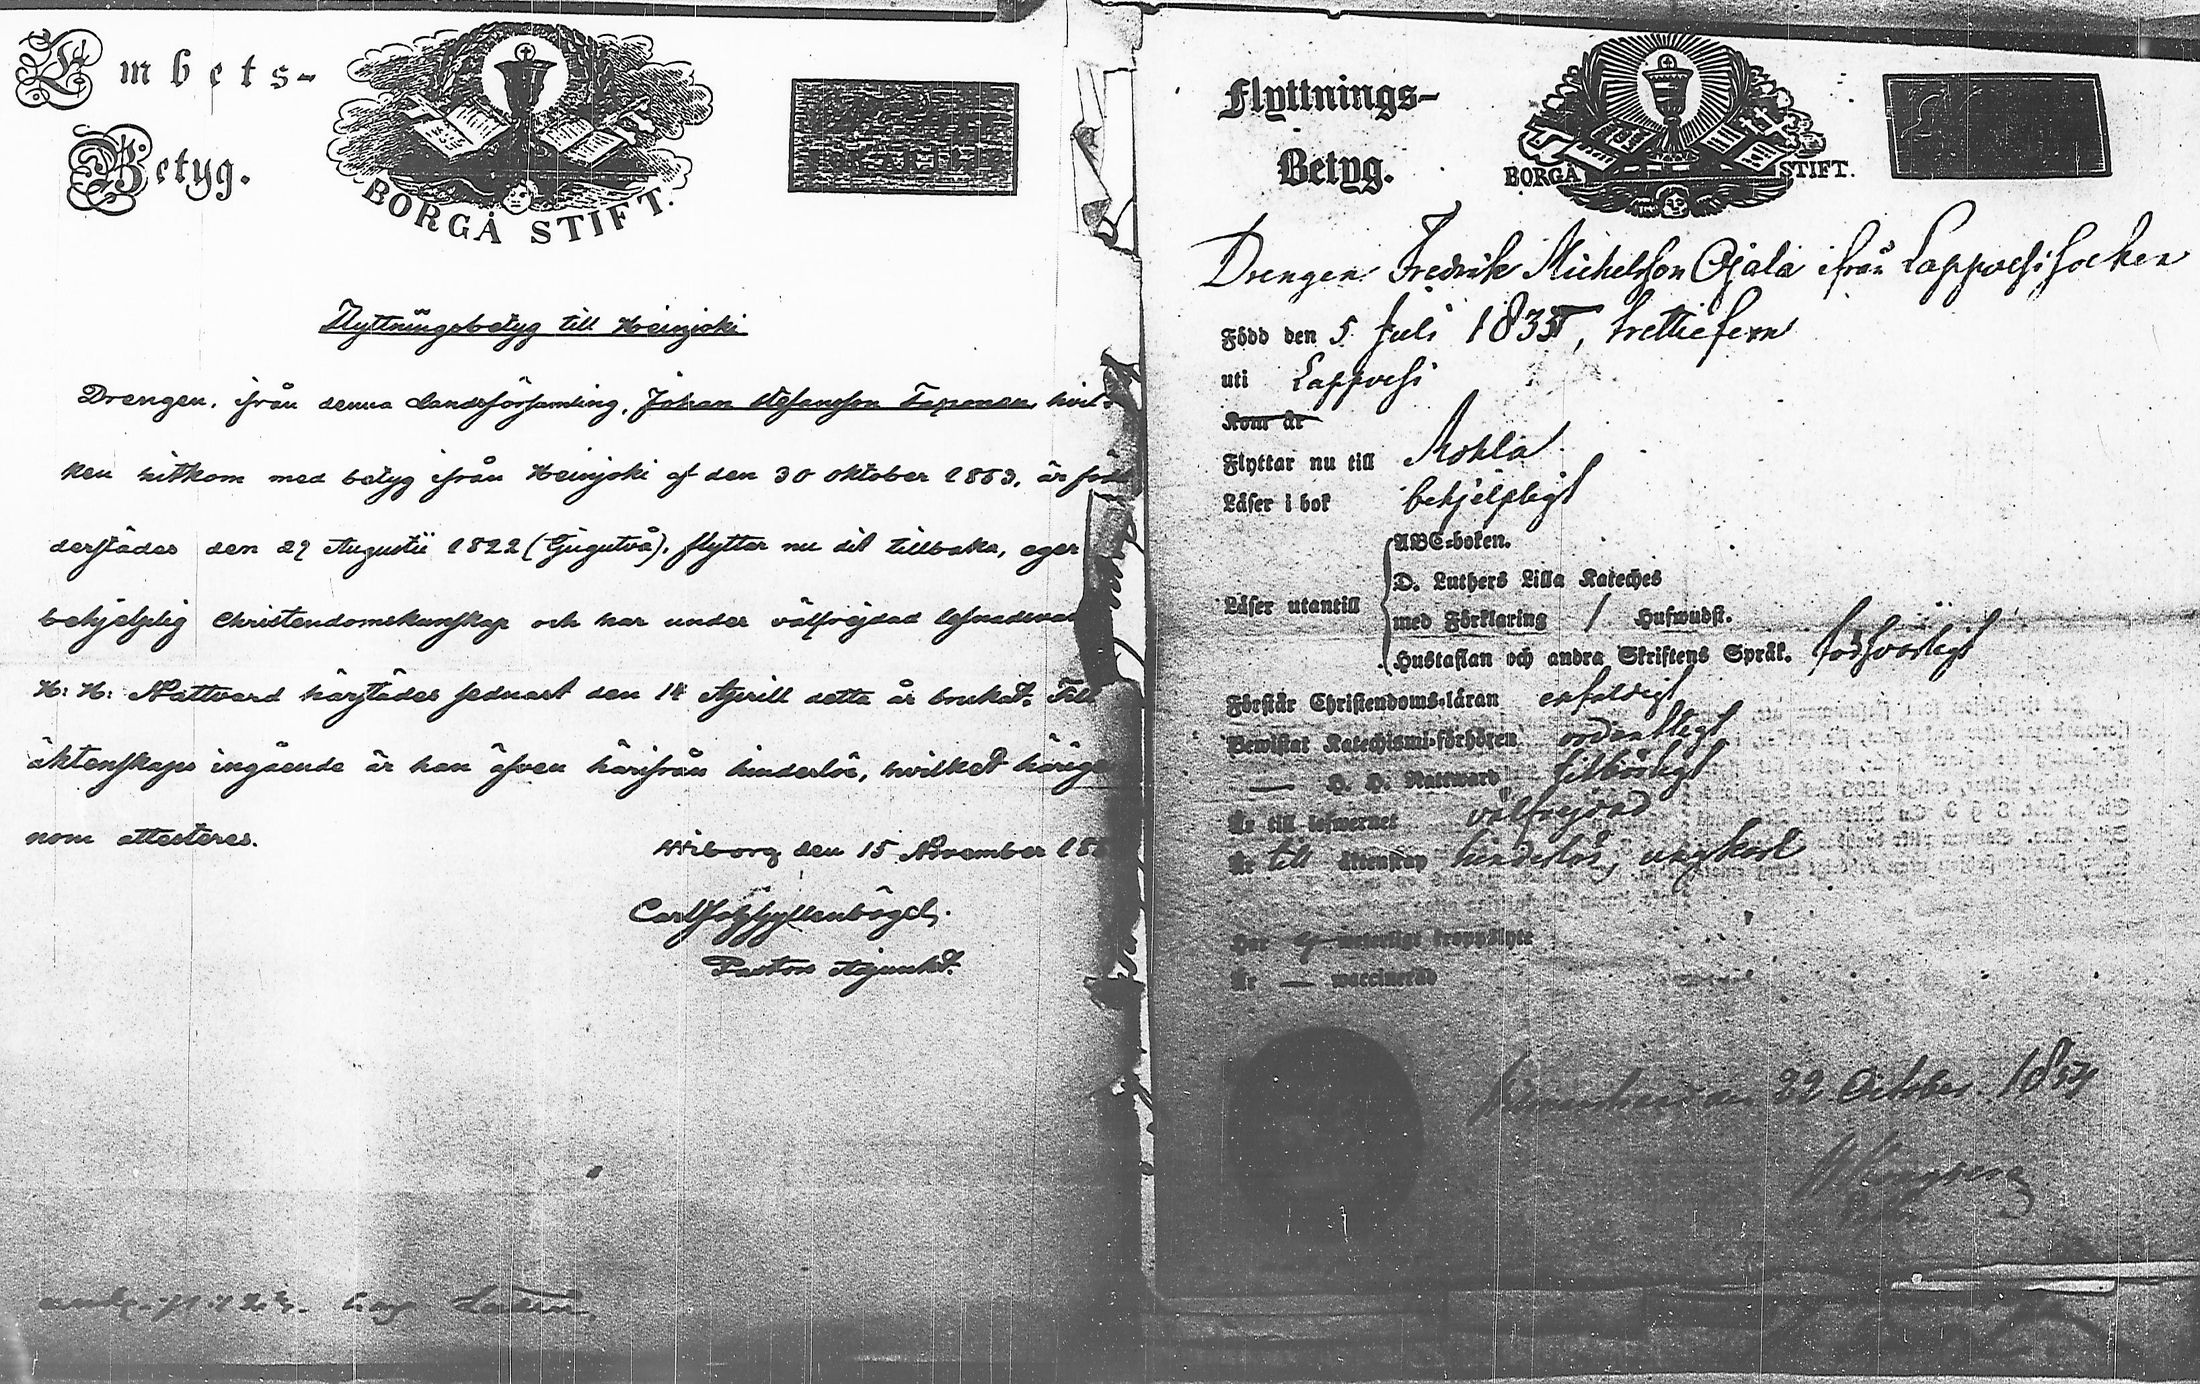 Embets-
Betyg.
BORGÅ STIFT.
Flyttningsbetyg till Heinjoki
Drengen, ifrån denna Landsförsamling, Johan Stefansson Taponen, hvil-
ken hitkom med betyg ifrån Heinjoki af den 30 oktober 1863, är född
derstädes den 29 Augustii 1822 (Tjugutvå), flyttar nu dit tillbaka, eger
behjelplig Christendomskunskap och har under välfrejdad lefnadsvan
H: H: Nattvard härstädes sednast den 14 Aprill detta år brukat. Till
äktenskaps ingående är han äfven härifrån hinderlös, hvilket härige
nom attesteras.
Wiborg den 15 November 18
Pastors Adjunkt.
Flyttnings-
Betyg.
BORGÅ STIFT.
Drengen Fredrik Michelsson Ojala ifrån Lappvesi socken
Född den 5 Juli 1835, trettiefem
uti Lappvesi
Kom år
Flyttar nu till Mohla
Läser i bok behjelpligt
ABC-boken.
D. Luthers Lilla Kateches
Läser utantill med Förklaring / Hufwudst.
Hustaflan och andra Skriftens Språk. försvarligt
Förstår Christendoms-läran enfaldigt
Bewistat Katechismi-förhören ordentligt
— H. H. Nattward tillbörligt
Är till lefwernet välfrejdad
Är till äktenskap hinderlös, ungkarl
Har ej naturligt kroppslyte
Är — waccinerad
22 October 185